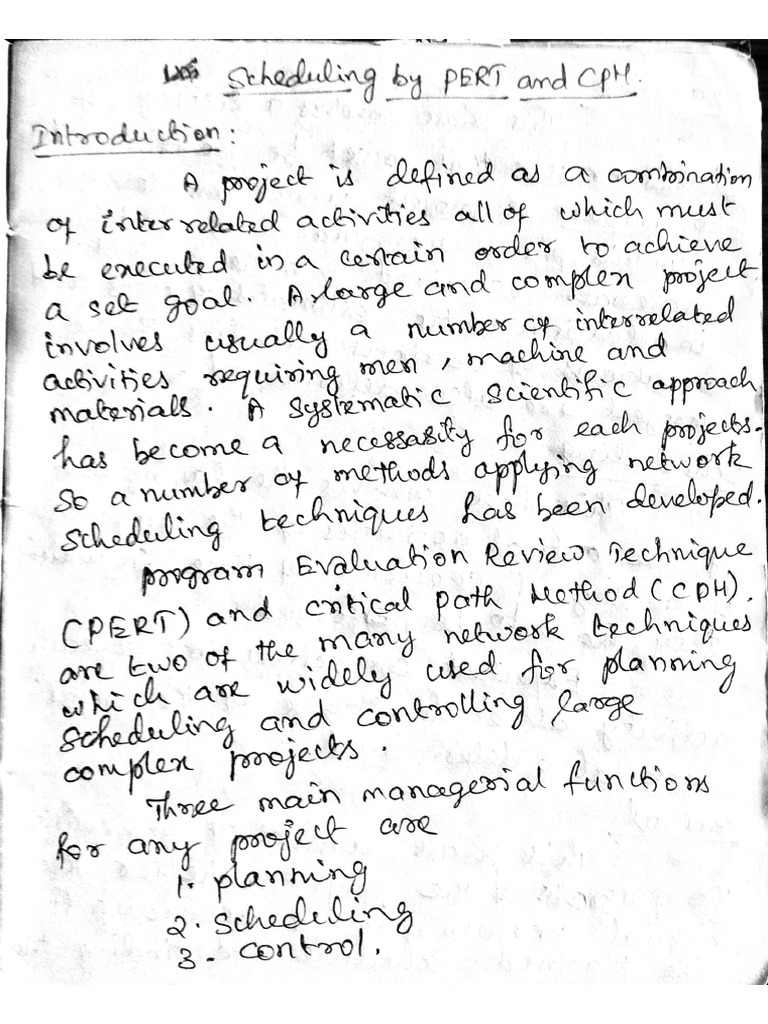 Scheduling by PERT and CPM.
Introduction:
A project is defined as a combination
of interrelated activities all of which must
be executed in a certain order to achieve
a set goal. A large and complex project
involves usually a number of interrelated
activities requiring men, machine and
materials. A systematic scientific approach
has become a necessasity for each projects.
So a number of methods applying network
scheduling techniques has been developed.
program Evaluation Review Technique
(PERT) and critical path Method (CPM).
are two of the many network techniques
which are widely used for planning
scheduling and controlling large
complex projects.
Three main managerial functions
for any project are
1. planning
2. scheduling
3- control.